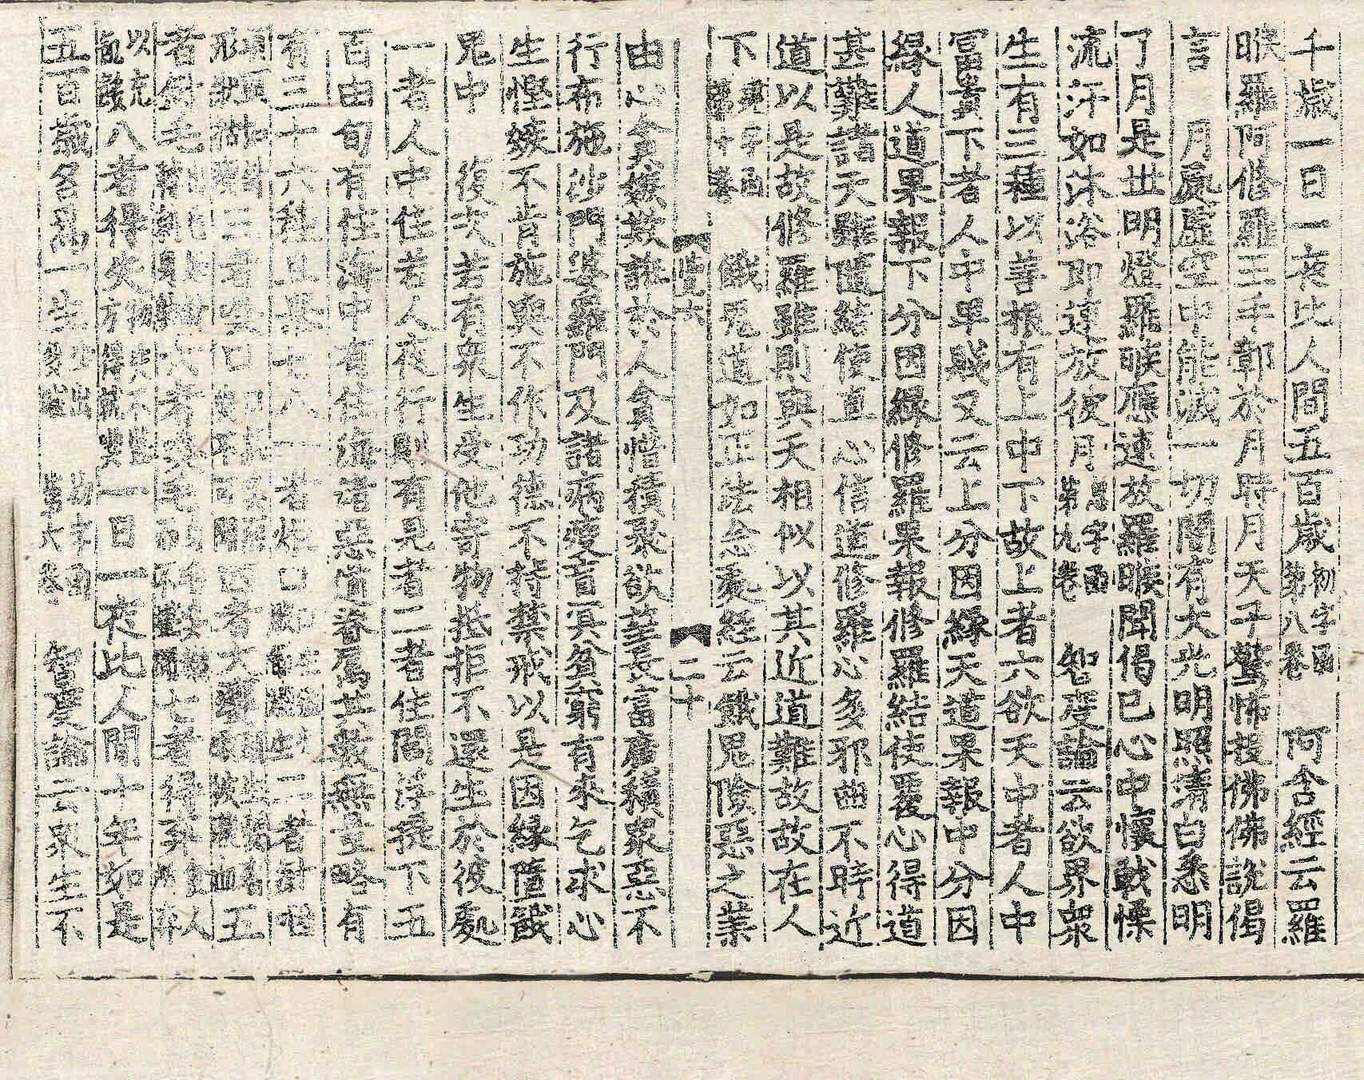 千歲一日一夜比人間五百歲初字函第八卷 阿含經云羅
睺羅阿修羅三千郭於月時月天子驚怖投佛佛說偈
言 月處虛空中能滅一切闇有大光明照淸白悉明
了月是世明燈羅睺應速放羅睺聞偈已心中懷戰慄
流汗如沐浴即違放彼月 第九卷 智度論云欲界衆
生有三種以善根有上中下故上者六欲天中者人中
冨貴下者人中卑賤又云上分因緣天道果報中分因
緣人道果報下分因緣修羅果報修羅結使覆心得道
甚難諸天雖隨結使直心信道修羅心多邪曲不時近
道以是故修羅雖則與天相似以其近道難故故在人
下 第十卷 餓鬼道如正法念處經云餓鬼險惡之業
二十
由心貪嫉欺誑於人貪惜積聚欲望長富廣積衆惡不
行布施沙門婆羅門及諸病瘦盲冥貧窮有來乞求心
生慳嫉不肯施與不作功德不持禁戒以是因緣墮餓
鬼中 復次若有衆生受他寄物抵拒不還生於彼處
一者人中住若人夜行則有見者二者住閻浮提下五
百由旬有住海中有住海渚惡道眷屬其數無量略有
有三十六種 一者 口 二者針 口
形狀 三者 口 四者大 五
者針毛 六者 七者得 人
以充 八者得失 一日一夜比人間十年如是
五百歲名爲一生 第六卷 智度論云衆生不